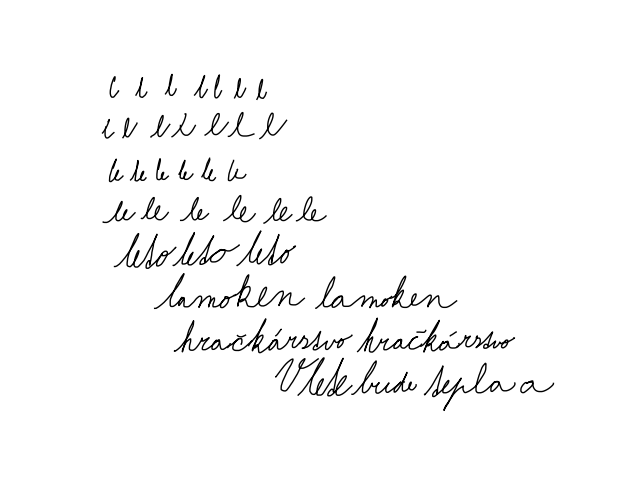 l l l l l l l
l l l l l l l
le le le le le le
le le le le le le
leto leto leto
lamoken lamoken
hračkárstvo hračkárstvo
V lete bude tepla a